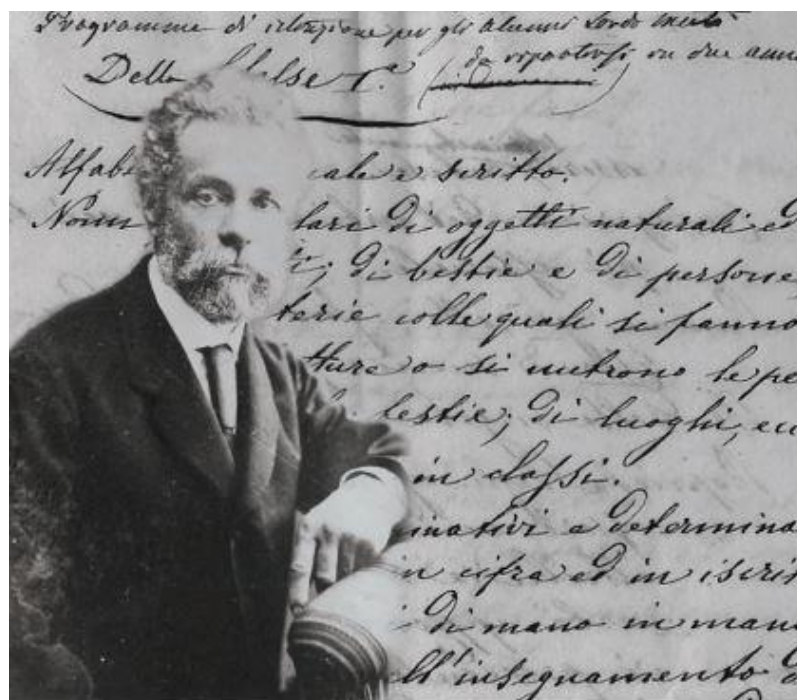 Programme di istruzione per gli alunni Sordo muti
da ripartirsi in due anni
Della Classe 1.a
Alfab ale e scritto.
Nomi lari di oggetti naturali ed
i; di bestie e di persone,
terie colle quali si fanno
tture o si nutrono le pe
bestie; di luoghi, ec
in classi.
inativi e determina
n cifra ed in iscrit
di mano in mano
ll'insegnamento d